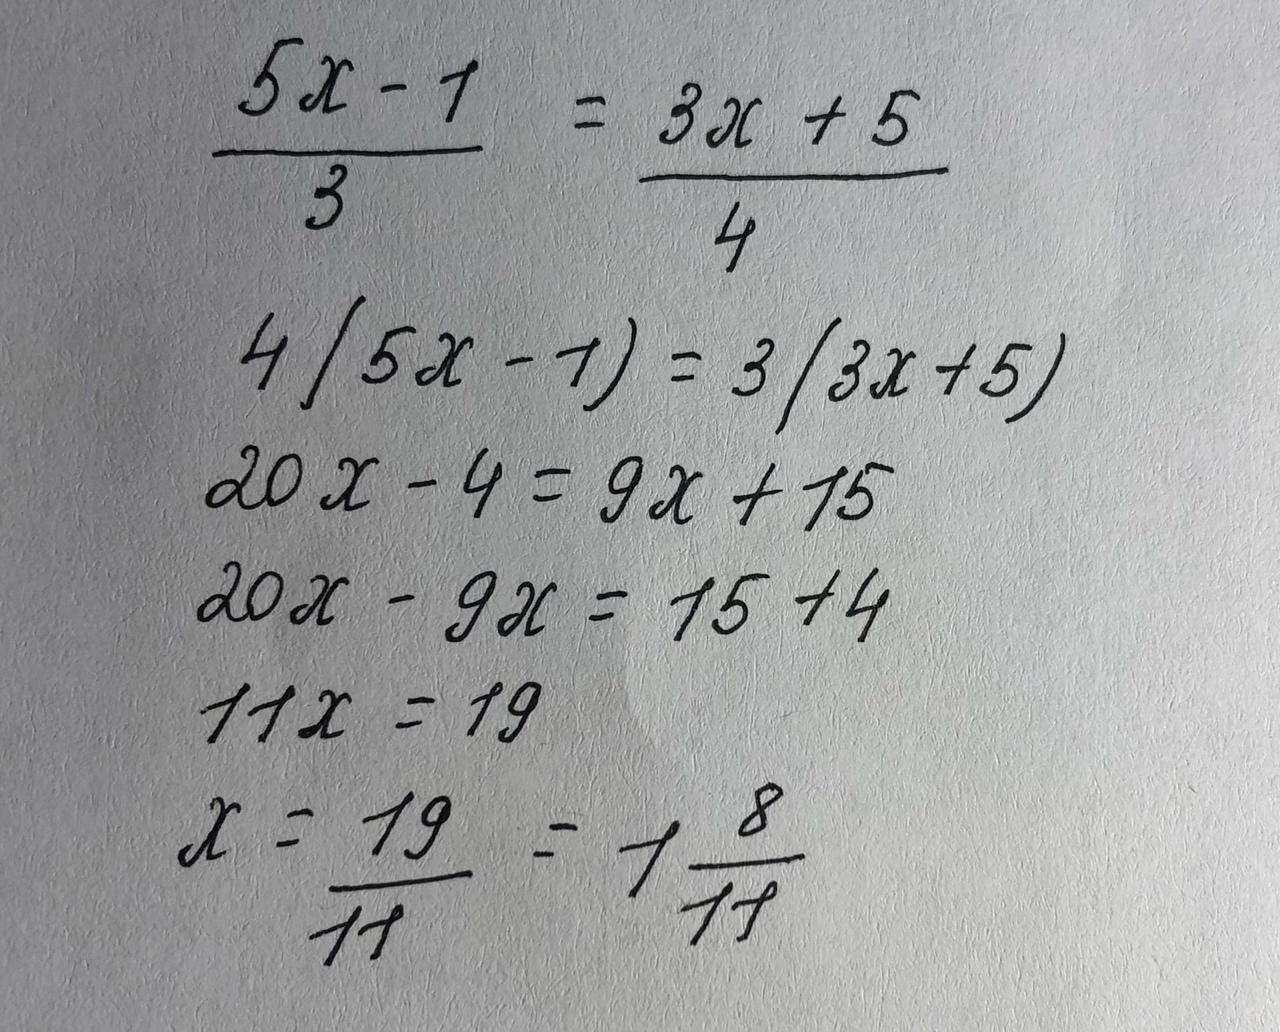 5x - 1 / 3 = 3x + 5 / 4
4(5x - 1) = 3(3x + 5)
20x - 4 = 9x + 15
20x - 9x = 15 + 4
11x = 19
x = 19/11 = 1 8/11